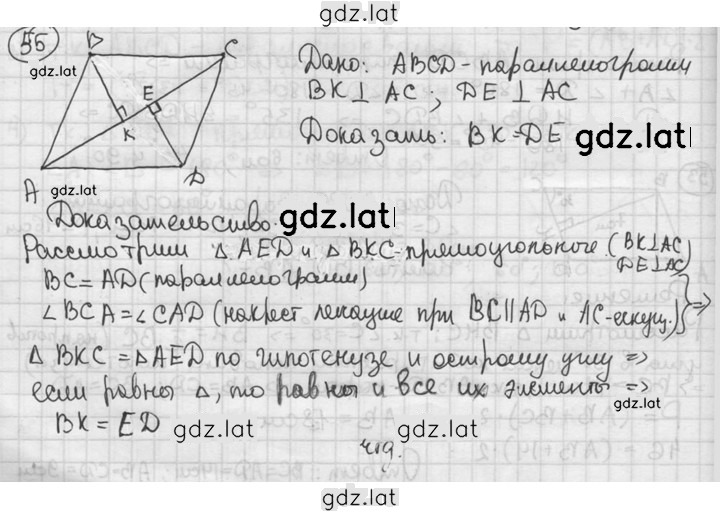 gdz.lat
55
B
C
gdz.lat
E
K
A
D
gdz.lat
Дано: ABCD - параллелограмм
BK ⊥ AC; DE ⊥ AC
Доказать: BK = DE
gdz.lat
Доказательство.
gdz.lat
Рассмотрим △ AED и △ BKC - прямоугольные (BK⊥AC
DE⊥AC)
BC = AD (параллелограмм)
∠BCA = ∠CAD (накрест лежащие при BC || AD и AC-секущ.) ⇒
△ BKC = △ AED по гипотенузе и острому углу ⇒
если равны △, то равны и все их элементы ⇒
gdz.lat
BK = ED
gdz.lat
gdz.lat
чтд.
gdz.lat